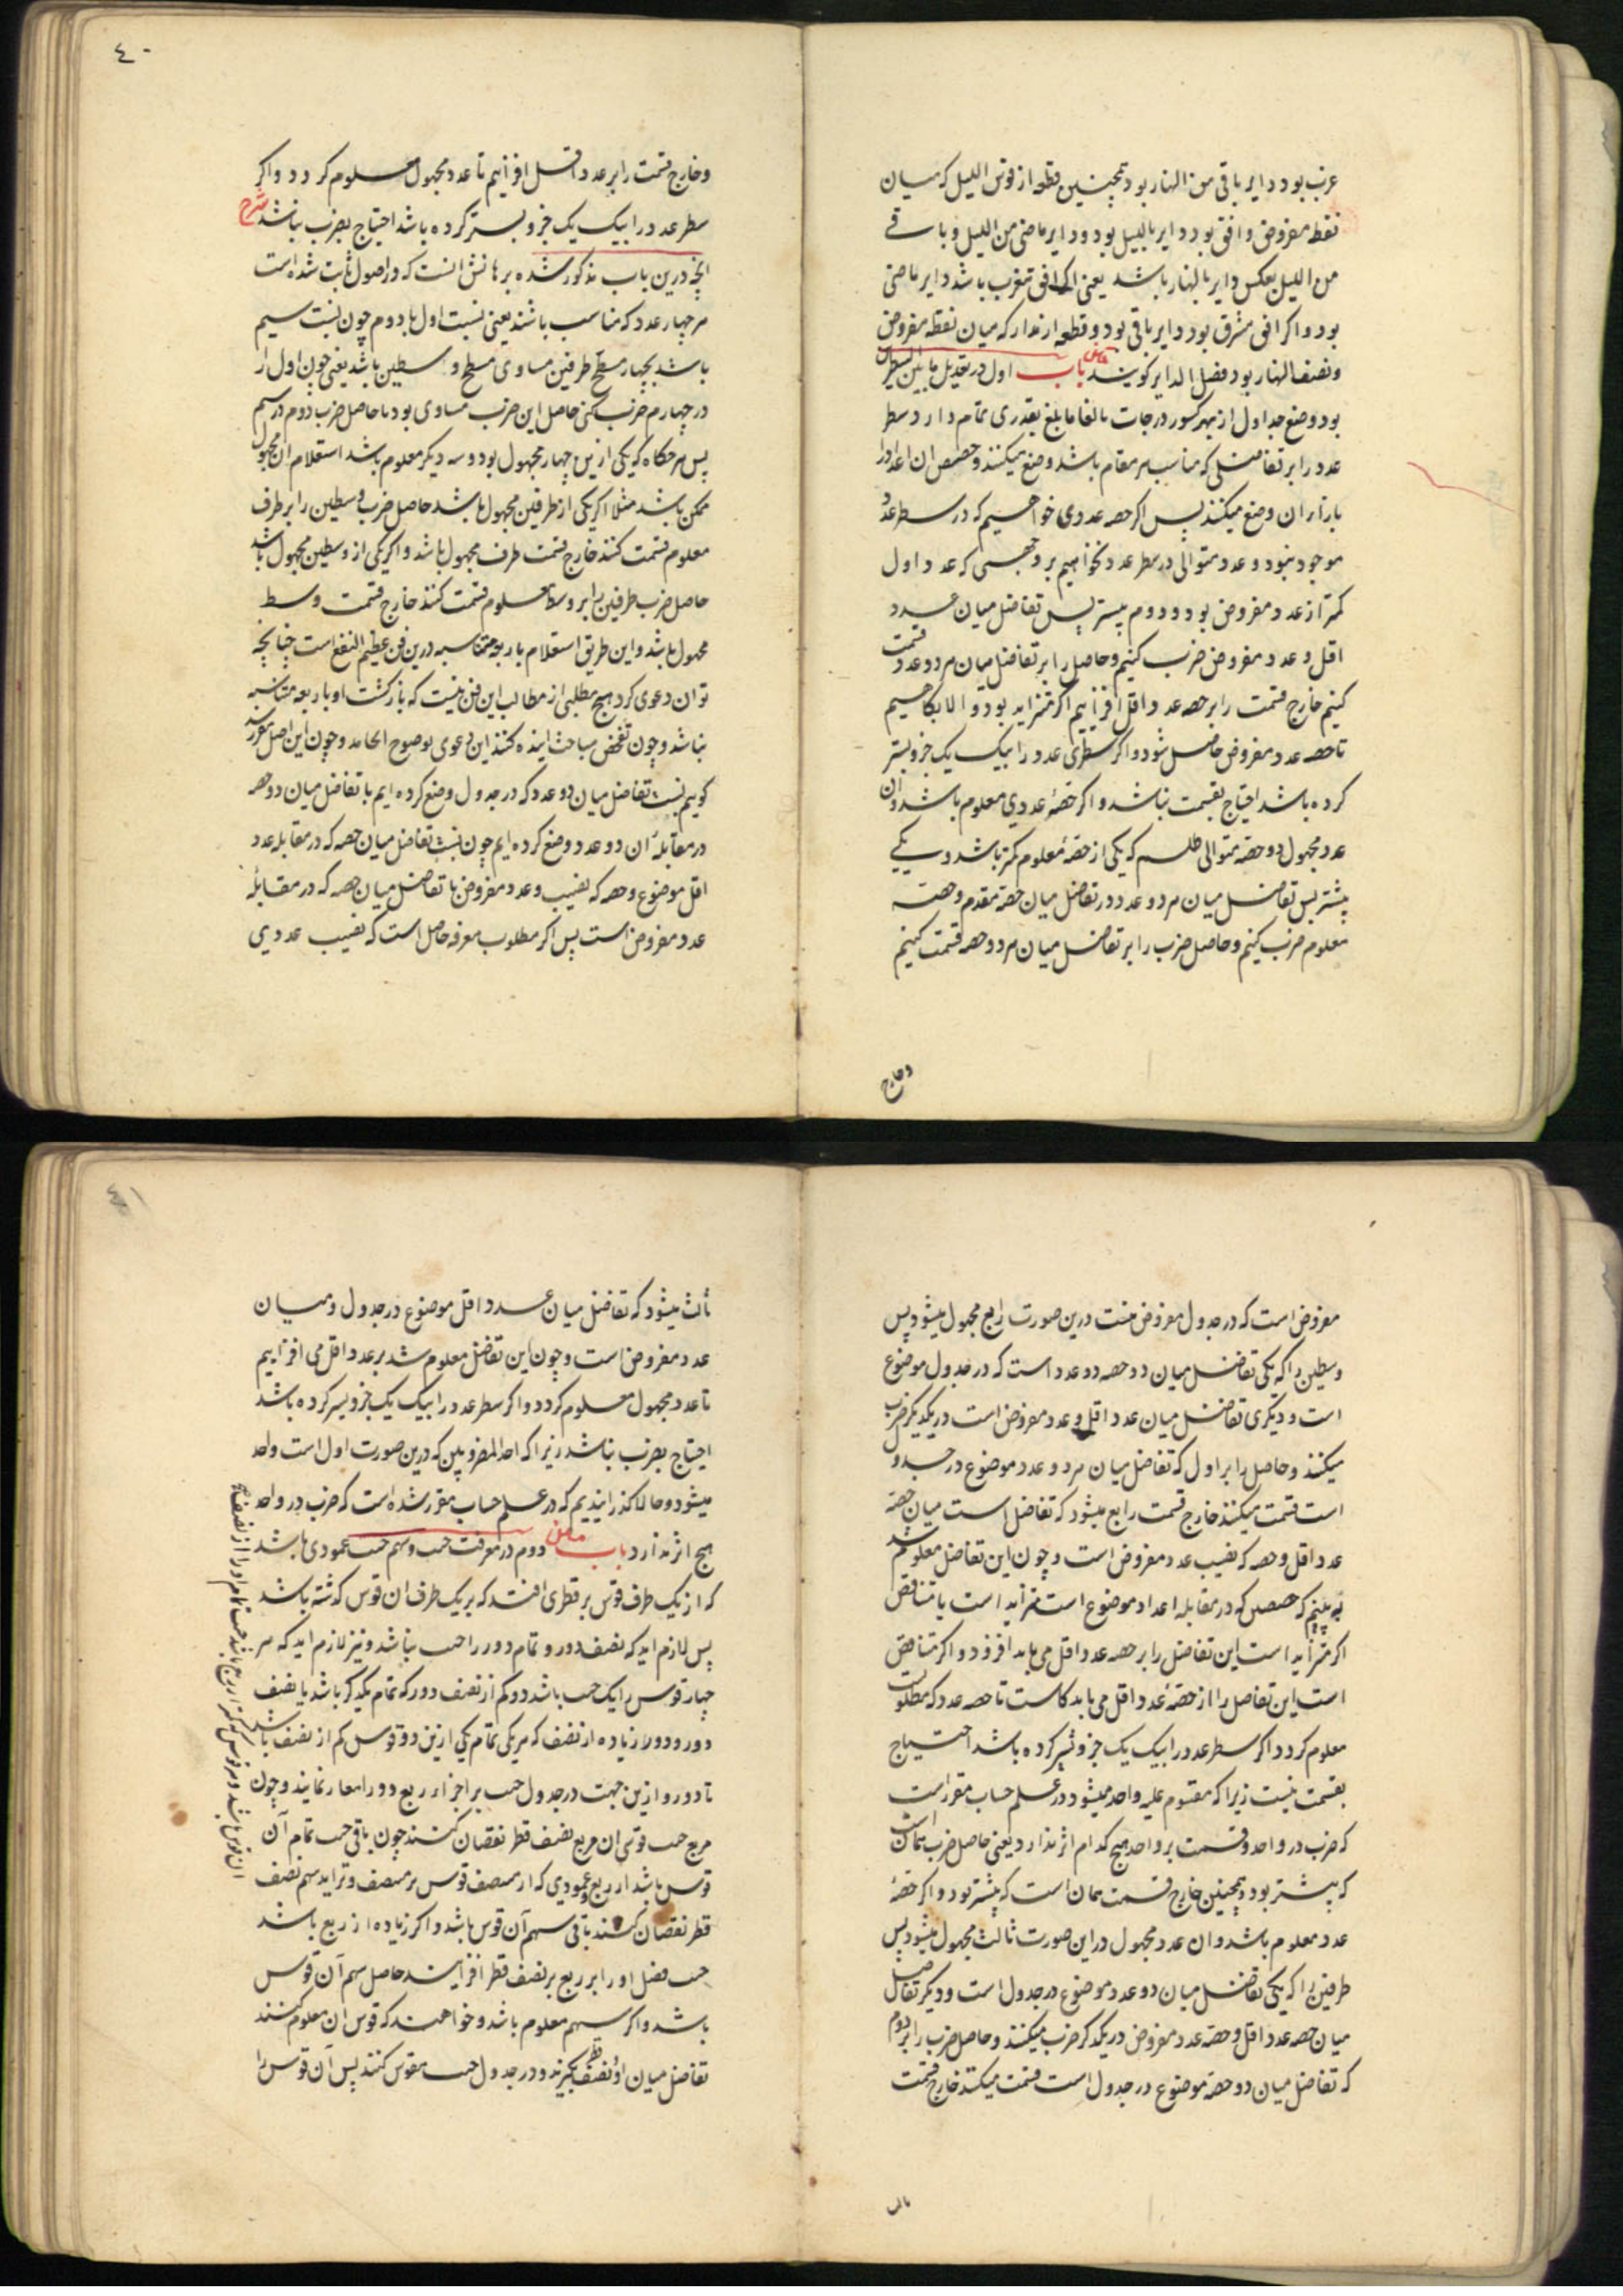 غرب بود دایر باقی من النهار بود همچنین قطعه از قوس اللیل که میان
نقطه مفروض و افق بود دایر باللیل بود و دایر ماضی من اللیل و باقی
من اللیل بعکس دایر بالنهار باشد یعنی اگر افق مغرب باشد دایر ماضی
بود و اگر افق مشرق بود دایر باقی بود و قطعه از مدار که میان نقطه مفروض
و نصف النهار بود فضل الدایر گویند باب اول در تعدیل ما بین السطرین
بود وضع جداول از بهر کسور درجات بالغا ما بلغ بقدری تمام دارد سطر
عدد را بر تفاضلی که مناسب هر مقام باشد وضع میکنند و حصص ان اعداد را
بازاء ان وضع میکنند پس اگر حصه عددی خواهیم که در سطر عدد
موجود نبود دو عدد متوالی در سطر عدد بخواهیم بر وجهی که عدد اول
کمتر از عدد مفروض بود و دوم بیشتر پس تفاضل میان عدد
اقل و عدد مفروض ضرب کنیم و حاصل را بر تفاضل میان هر دو عدد قسمت
کنیم خارج قسمت را بر حصه عدد اقل افزاییم اگر متزاید بود و الا بکاهیم
تا حصه عدد مفروض حاصل شود و اگر سطری عدد را بیک یک جزو بستر
کرده باشد احتیاج بقسمت نباشد و اگر حصهٔ عددی معلوم باشد و ان
عدد مجهول دو حصه متوالی طلبیم که یکی از حصهٔ معلوم کمتر باشد و یکی
بیشتر پس تفاضل میان هر دو عدد در تفاضل میان حصه مقدم و حصه
معلوم ضرب کنیم و حاصل ضرب را بر تفاضل میان هر دو حصه قسمت کنیم
و خارج
٤٠
و خارج قسمت را بر عدد اقل افزاییم تا عدد مجهول معلوم گردد و اگر
سطر عدد را بیک یک جزو بستر کرده باشد احتیاج بضرب نباشد شرح
انچه درین باب مذکور شده برهانش انست که در اصول ثابت شده است
هر چهار عدد که مناسب باشند یعنی نسبت اول با دوم چون نسبت سیم
باشد بچهارم مسطح طرفین مساوی مسطح وسطین باشد یعنی چون اول را
در چهارم ضرب کنی حاصل این ضرب مساوی بود با حاصل ضرب دوم در سیم
پس هر گاه که یکی ازین چهار مجهول بود و سه دیگر معلوم باشد استعلام ان مجهول
ممکن باشد مثلا اگر یکی از طرفین مجهول باشد حاصل ضرب وسطین را بر طرف
معلوم قسمت کنند خارج قسمت طرف مجهول باشد و اگر یکی از وسطین مجهول باشد
حاصل ضرب طرفین را بر وسط معلوم قسمت کنند خارج قسمت وسط
مجهول باشد و این طریق استعلام باربعه متناسبه درین فن عظیم النفع است چنانچه
توان دعوی کرد هیچ مطلبی از مطالب این فن نیست که بازگشت او باربعه متناسبه
نباشد و چون تفحص مباحث اینده کنند این دعوی بوضوح انجامد و چون این اصل مقرر شد
گوییم نسبت تفاضل میان دو عدد که در جدول وضع کرده ایم با تفاضل میان دو حصه
در مقابلهٔ ان دو عدد وضع کرده ایم چون نسبت تفاضل میان حصه که در مقابله عدد
اقل موضوع و حصه که نصیب و عدد مفروض با تفاضل میان حصه که در مقابلهٔ
عدد مفروض است پس اگر مطلوب معرفه حاصل است که نصیب عددی
مفروض است که در جدول مفروض نیست درین صورت رابع مجهول میشود پس
وسطین را که یکی تفاضل میان دو حصه دو عدد است که در جدول موضوع
است و دیگری تفاضل میان عدد اقل و عدد مفروض است در یکدیگر ضرب
میکنند و حاصل را بر اول که تفاضل میان هر دو عدد موضوع در جدول
است قسمت میکنند خارج قسمت رابع میشود که تفاضل است میان حصهٔ
عدد اقل و حصه که نصیب عدد مفروض است و چون این تفاضل معلوم شد
به بینیم که حصص که در مقابله اعداد موضوع است متزاید است یا متناقص
اگر متزاید است این تفاضل را بر حصه عدد اقل می باید افزود و اگر متناقص
است این تفاضل را از حصهٔ عدد اقل می باید کاست تا حصه عدد که مطلوبست
معلوم گردد اگر سطر عدد را بیک یک جزو بستر کرده باشد احتیاج
بقسمت نیست زیرا که مقسوم علیه واحد میشود و در علم حساب مقرر است
که ضرب در واحد و قسمت بر واحد هیچ کدام اثر ندارد یعنی حاصل ضرب همان است
که بیشتر بود و همچنین خارج قسمت همان است که بیشتر بود و اگر حصهٔ
عدد معلوم باشد و ان عدد مجهول در این صورت ثالث مجهول میشود پس
طرفین را که یکی تفاضل میان دو عدد موضوع در جدول است و دیگر تفاضل
میان حصه عدد اقل و حصه عدد مفروض در یکدیگر ضرب میکنند و حاصل ضرب را بر دوم
که تفاضل میان دو حصه موضوع در جدول است قسمت میکنند خارج قسمت
ثالث
٤١
ثالث میشود که تفاضل میان عدد اقل موضوع در جدول و میان
عدد مفروض است و چون این تفاضل معلوم شد بر عدد اقل می افزاییم
تا عدد مجهول معلوم گردد و اگر سطر عدد را بیک یک جزو بستر کرده باشد
احتیاج بضرب نباشد زیرا که احد المضروبین که درین صورت اول است واحد
میشود و حالا گذرانیدیم که در علم حساب مقرر شده است که ضرب در واحد
هیچ اثر ندارد باب دوم در معرفت جیب و سهم جیب عمودی باشد
که از یک طرف قوس بر قطری افتد که بر یک طرف ان قوس گذشته باشد
پس لازم اید که نصف دور و تمام دور را جیب نباشد و نیز لازم اید که هر
چهار قوس را یک جیب باشد دو کم از نصف دور که تمام یکدیگر باشد یا نصف
دور و دو زیاده از نصف که هر یکی تمام یکی ازین دو قوس کم از نصف باشد
تا دور و ازین جهت در جدول جیب بر اجزاء ربع دور اقتصار نمایند و چون
مربع جیب قوسی از مربع نصف قطر نقصان کنند چون باقی جیب تمام آن
قوس باشد از ربع و عمودی که از منصف قوس بر منصف وتر اید سهم نصف
قطر نقصان کنند باقی سهم آن قوس باشد و اگر زیاده از ربع باشد
جیب فضل او را بر ربع بر نصف قطر افزایند حاصل سهم آن قوس
باشد و اگر سهم معلوم باشد و خواهند که قوس ان معلوم کنند
تفاضل میان او و نصف قطر بگیرند و در جدول جیب مقوس کنند پس آن قوس را